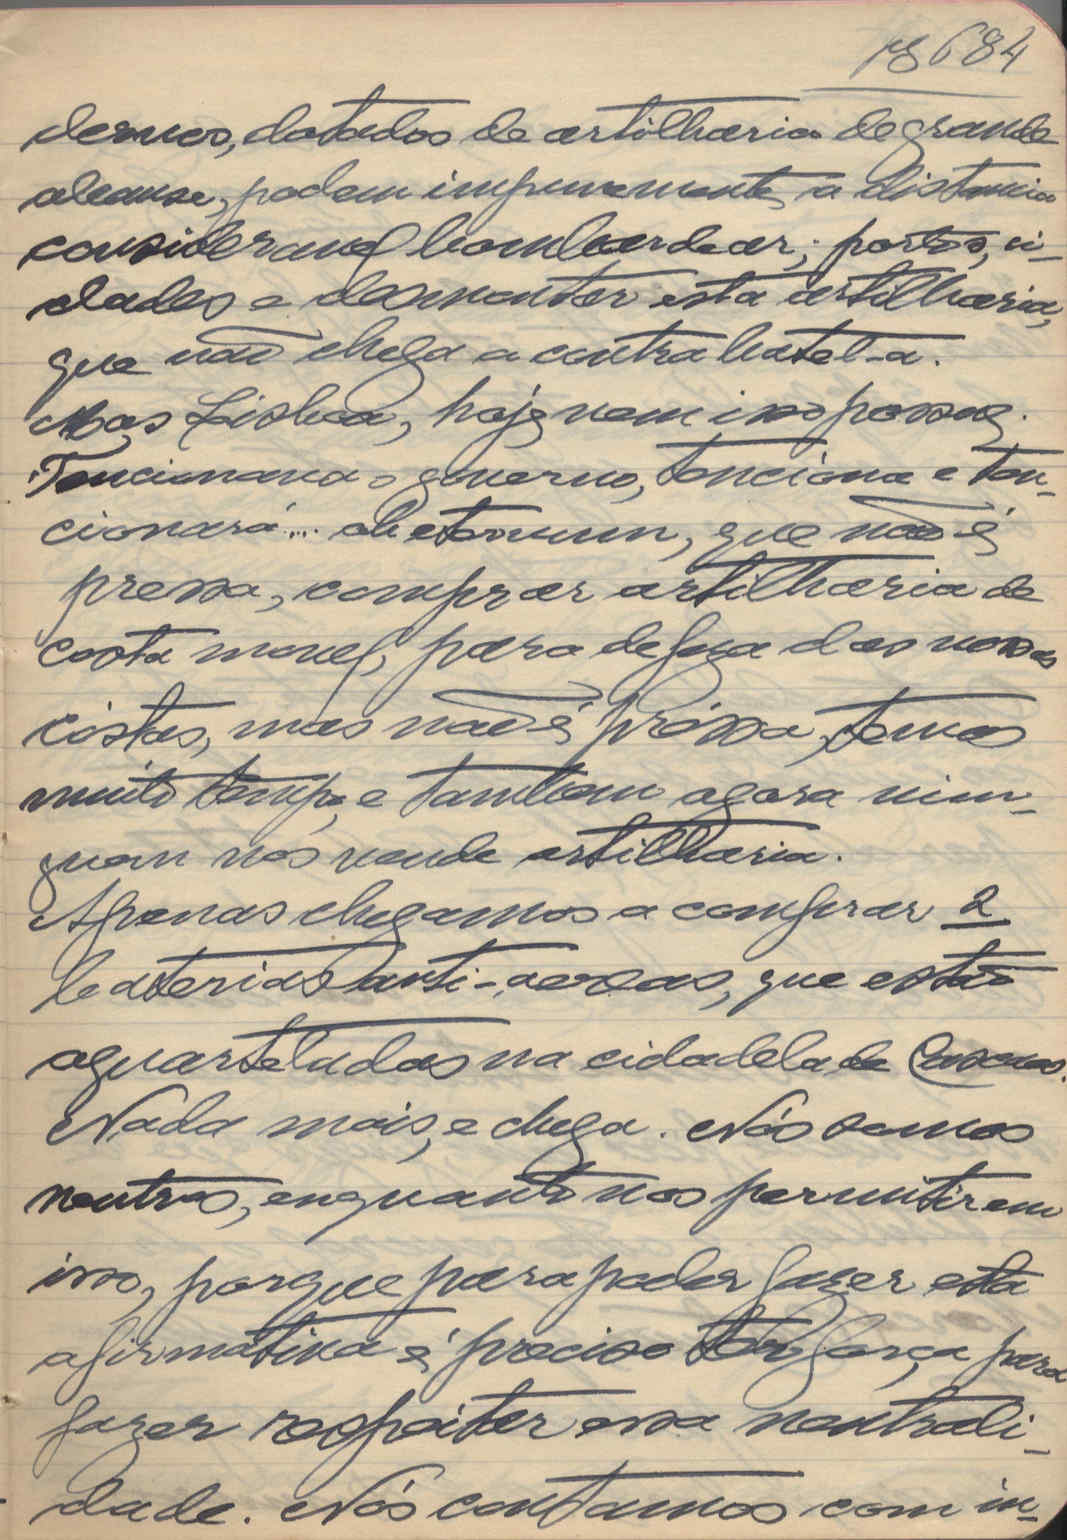 pg 684
dernos, dotados de artilharia de grande
alcanse, podem impunemente, a distancia
consideravel bombardear; portos, ci-
dades e desmontar esta artilharia,
que não chega a contrabatel-a.
Mas Lisboa, hoje nem isso possue.
Tencionava o governo, tenciona e ten-
cionará... ab eternum, que não é
pressa, comprar artilharia de
costa movel, para defeza das nossas
costas, mas não é préssa, temos
muito tempo, e tambem agora nim-
guem nos vende artilharia.
Apenas chegamos a comprar 2
baterias anti-aereas, que estão
aquarteladas na cidadela de Cascaes.
Nada mais, e chega. Nós somos
neutros, enquanto nos permitirem
isso, porque para poder fazer esta
afirmativa é preciso ter força, para
fazer respeitar essa neutrali-
dade. Nós contamos com in-